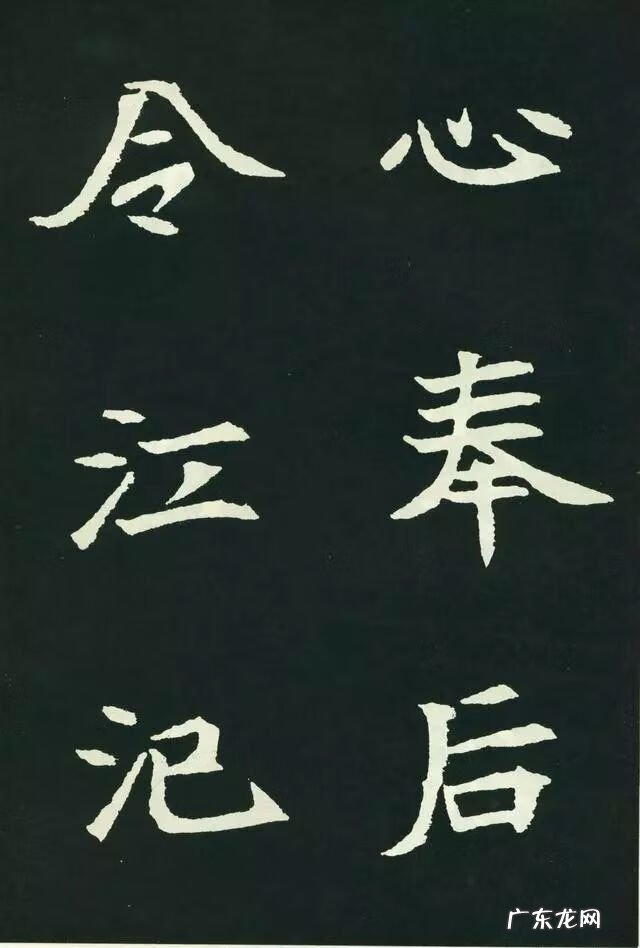 心奉后
令江汜
广东龙网